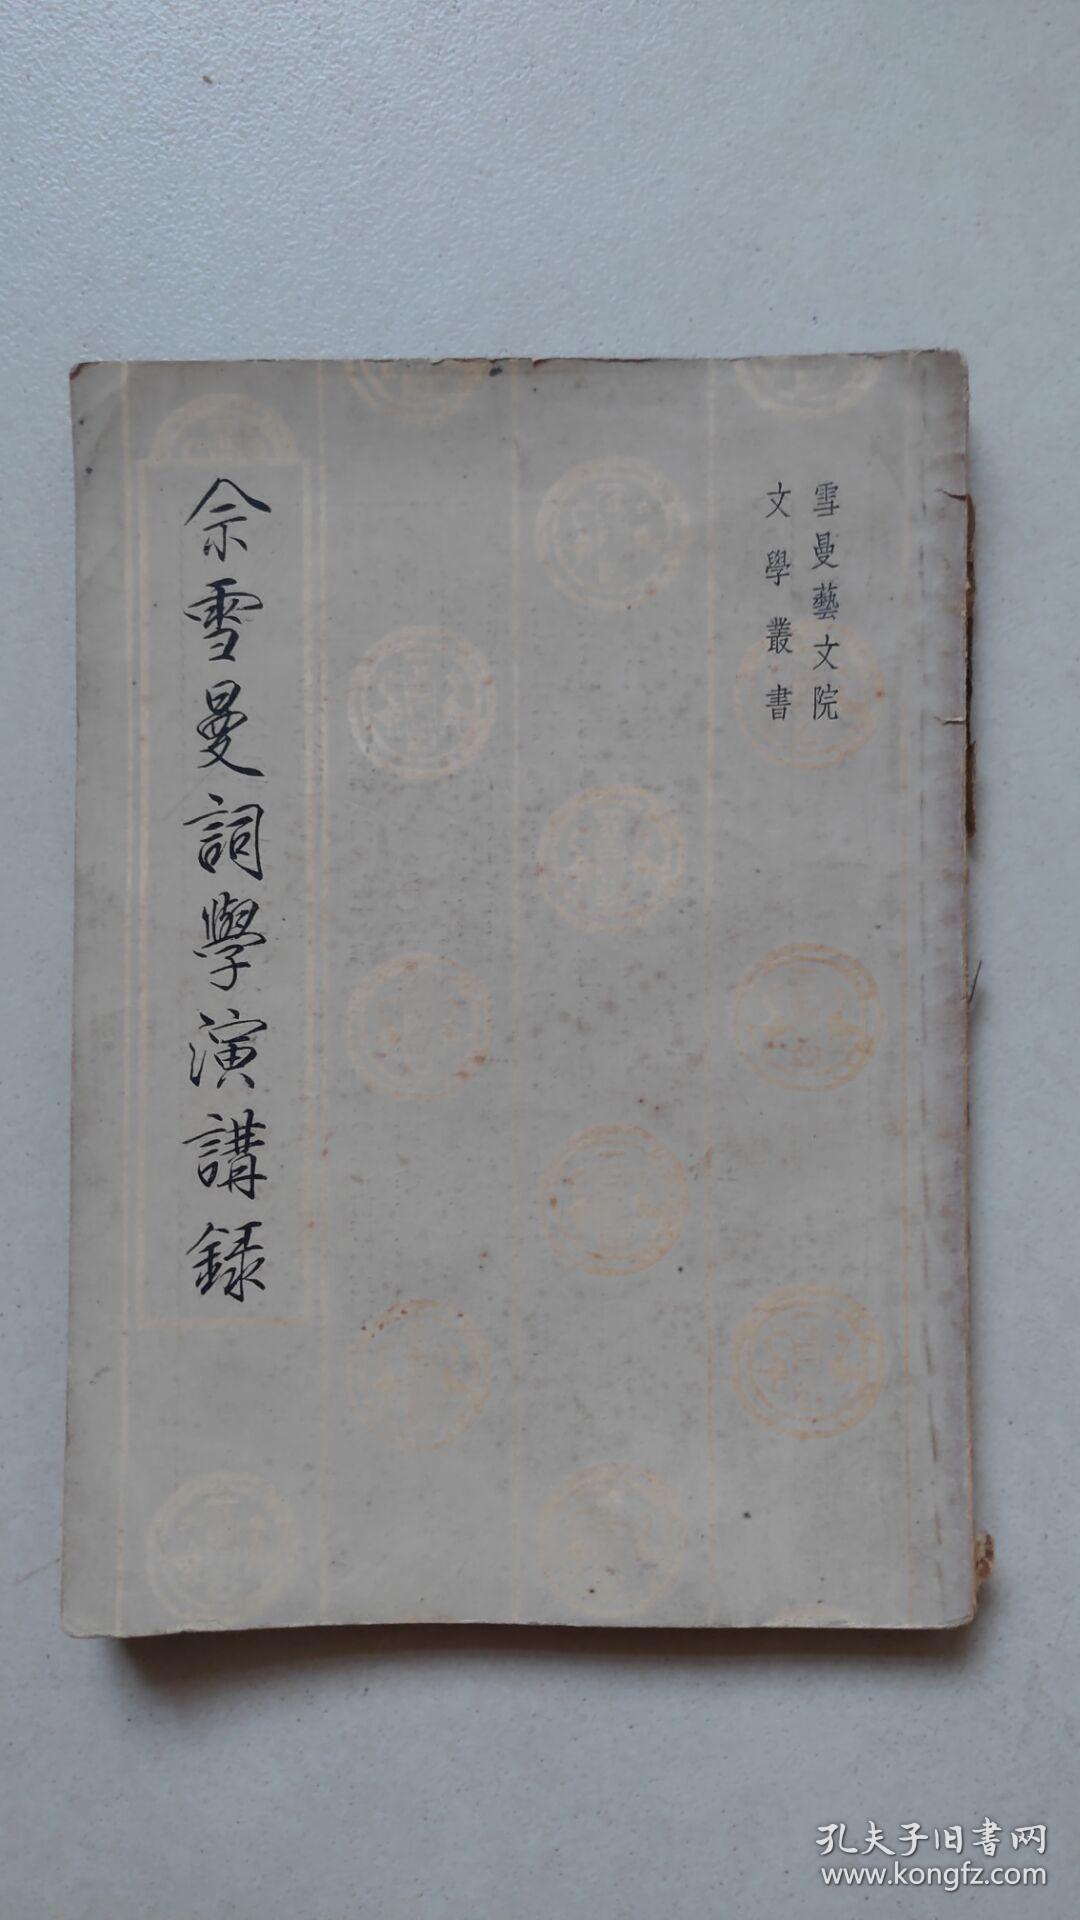 雪曼藝文院
文學叢書
佘雪曼詞學演講録
孔夫子旧書网
www.kongfz.com